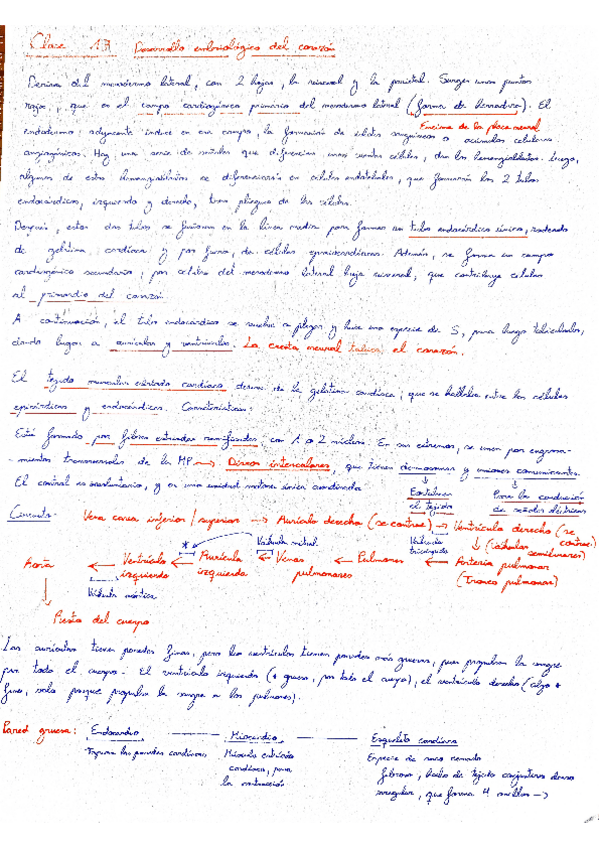 Clase 17 Desarrollo embriológico del corazón
Deriva del mesodermo lateral, con 2 hojas, la visceral y la parietal. Surgen unos puntos
rojos, que es el campo cardiogénico primario del mesodermo lateral (forma de herradura). El
Encima de la placa neural
endodermo adyacente induce en ese campo, la formación de islotes sanguíneos o acúmulos celulares
angiogénicos. Hay una serie de señales que diferencian unas células, dan los hemangioblastos. Luego,
algunos de estos hemangioblastos se diferenciarán en células endoteliales, que formarán los 2 tubos
endocárdicos, izquierdo y derecho, tras pliegue de las células.
Después, estos dos tubos se fusionan en la línea media para formar un tubo endocárdico único, rodeado
de gelatina cardiaca y por fuera, de células epimiocárdicas. Además, se forma un campo
cardiogénico secundario, por células del mesodermo lateral hoja visceral, que contribuye células
al primordio del corazón.
A continuación, el tubo endocárdico se vuelve a plegar y hace una especie de S, para luego tabicarlo,
dando lugar a aurículas y ventrículos. La cresta neural tabica el corazón.
El tejido muscular estriado cardiaco deriva de la gelatina cardiaca, que se hallaba entre las células
epicárdicas y endocárdicas. Características:
Está formado por fibras estriadas ramificadas, con 1 o 2 núcleos. En sus extremos, se unen por engrosa-
-mientos transversales de la MP → Discos intercalares, que tienen desmosomas y uniones comunicantes.
El control es involuntario, y es una unidad motora única coordinada
Estabilizan el tejido
Para la conducción de señales eléctricas
Circuito: Vena cava inferior / superior → Aurícula derecha (se contrae) → Ventrículo derecho (se contrae)
Válvula tricúspide
(válvulas semilunares)
* Válvula mitral
Aorta ← Ventrículo izquierdo ← Aurícula izquierda ← Venas pulmonares ← Pulmones ← Arteria pulmonar (Tronco pulmonar)
Válvula aórtica
Resto del cuerpo
Las aurículas tienen paredes finas, pero los ventrículos tienen paredes más gruesas, pues propulsan la sangre
por todo el cuerpo. El ventrículo izquierdo (+ grueso, por todo el cuerpo), el ventrículo derecho (algo +
fino, solo porque propulsa la sangre a los pulmones).
Pared gruesa: Endocardio — Miocardio — Esqueleto cardiaco
Tapiza las paredes cardiacas
Músculo estriado cardiaco, para la contracción
Especie de
fibroso, hecho de tejido conjuntivo denso
irregular, que forma 4 anillos →